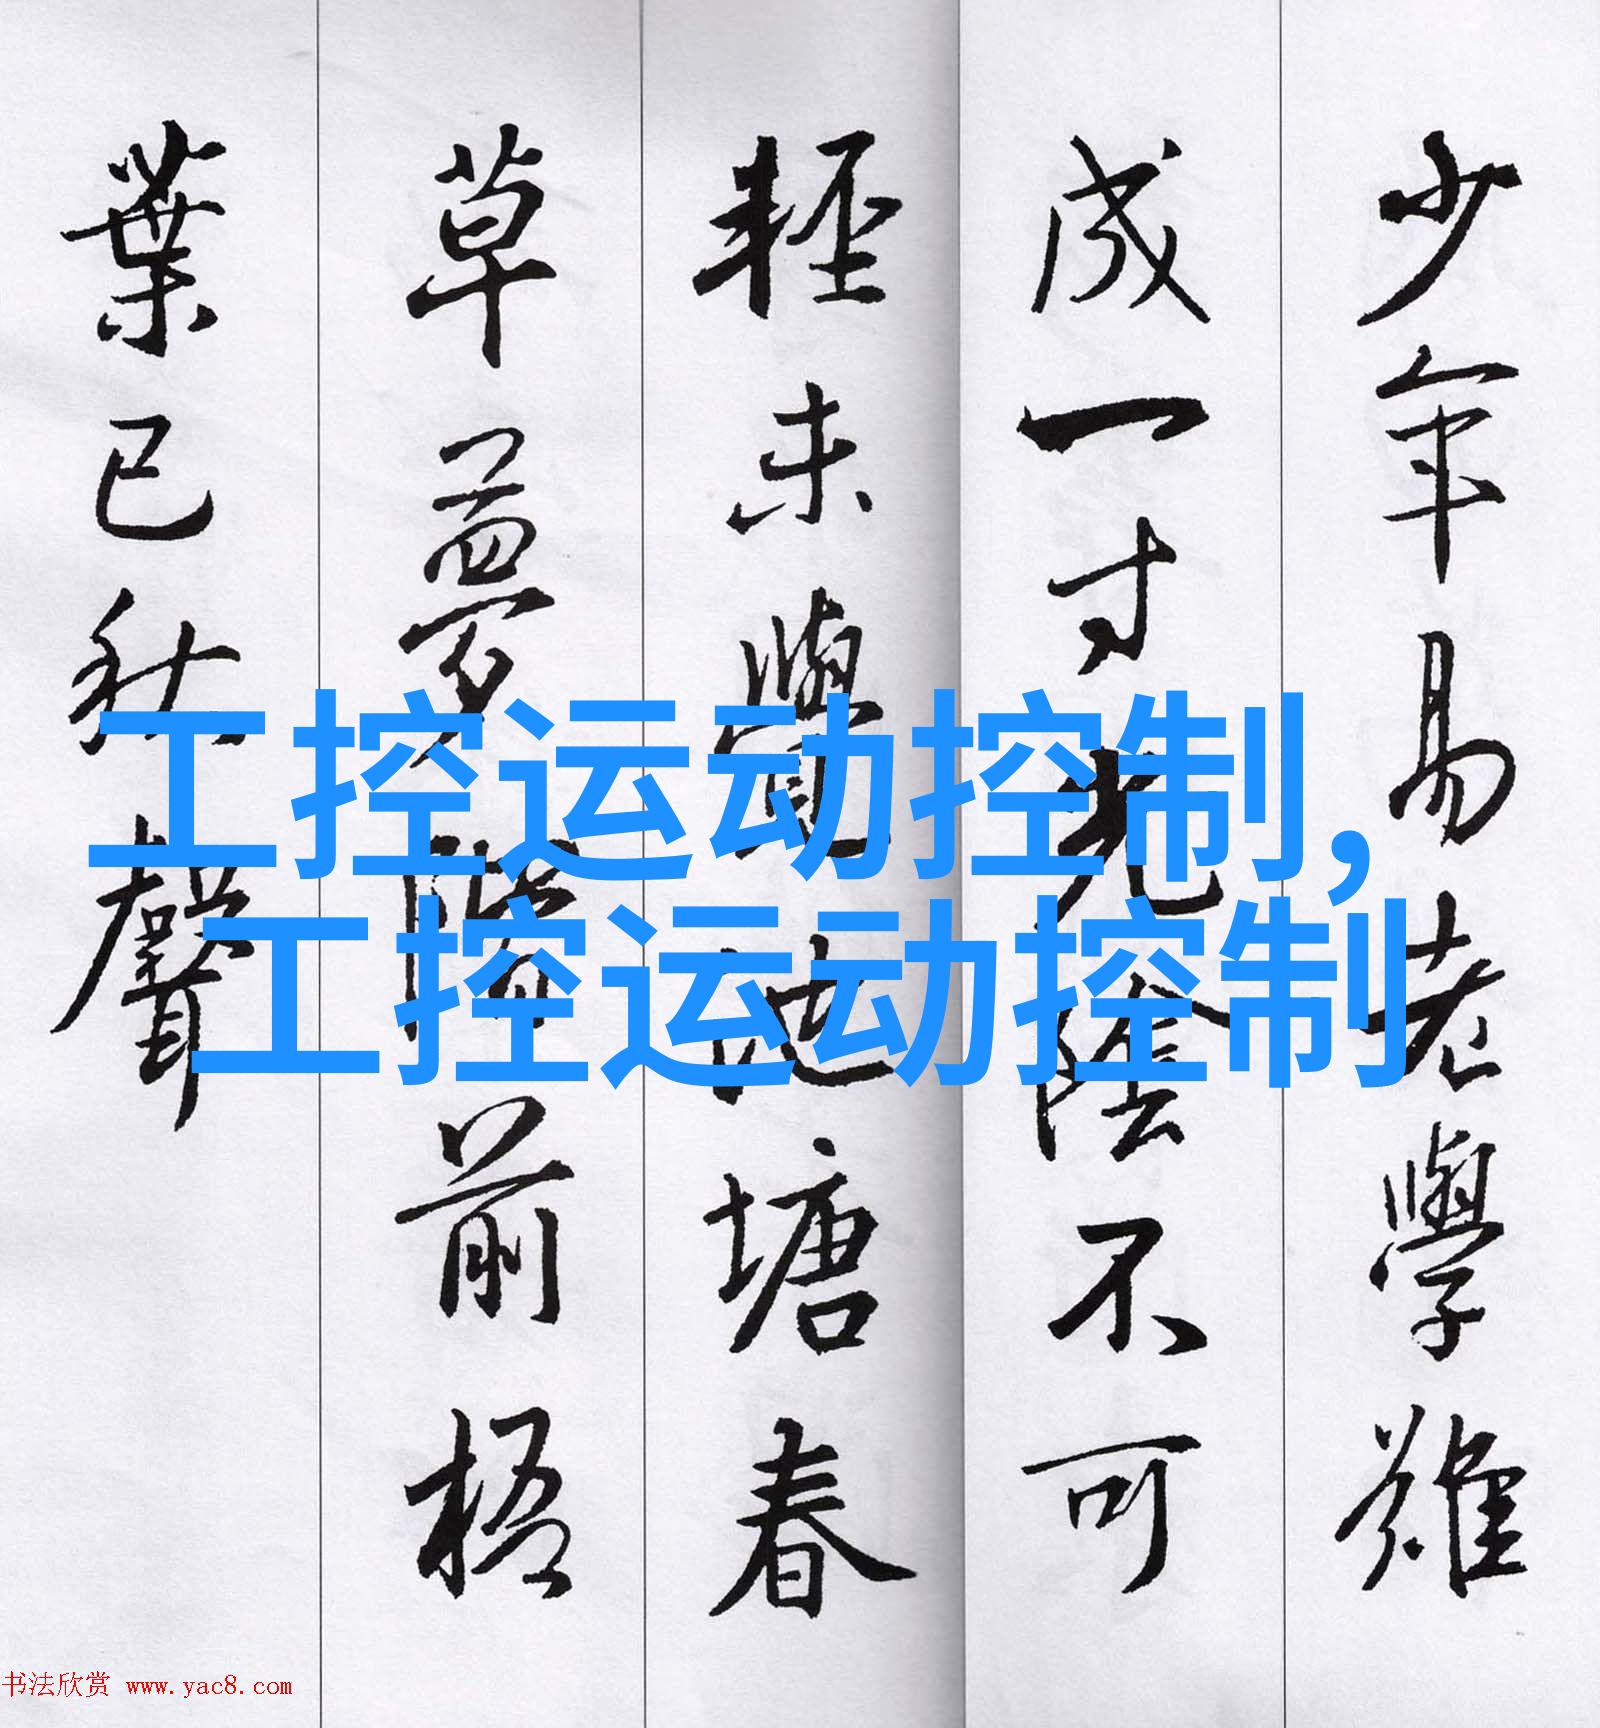 少年易老學難
成一寸光陰不可
輕未覺池塘春
草夢階前梧
葉已秋聲
工控运动控制,
工控运动控制
书法欣赏 www.yac8.com